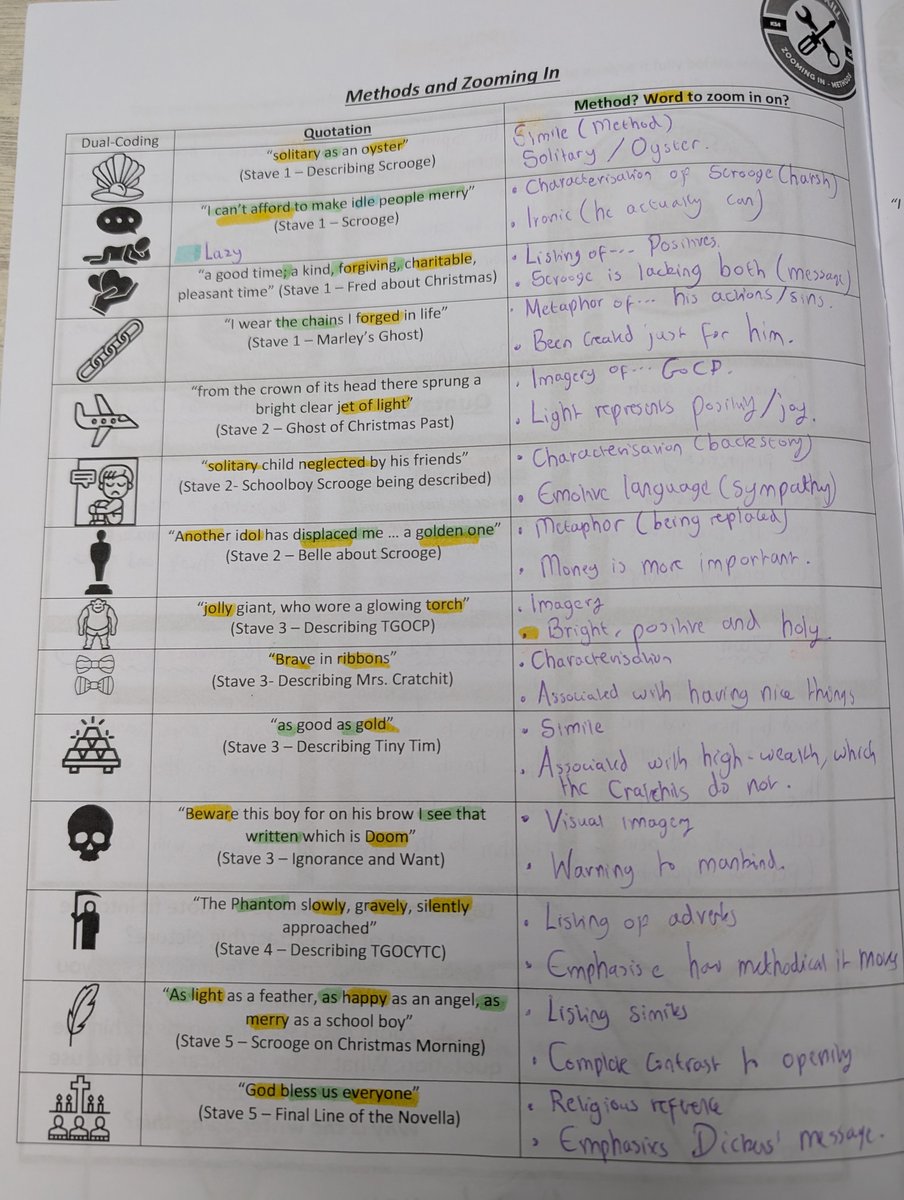 SKILL
KS4
ZOOMING IN - METHODS
Methods and Zooming In
Dual-Coding
Quotation
Method? Word to zoom in on?
"solitary as an oyster"
(Stave 1 – Describing Scrooge)
Simile (Method)
Solitary / Oyster.
"I can't afford to make idle people merry"
(Stave 1 – Scrooge)
Lazy
• Characterisation of Scrooge (harsh)
• Ironic (he actually can)
"a good time; a kind, forgiving, charitable,
pleasant time" (Stave 1 – Fred about Christmas)
• Listing of... Positives.
• Scrooge is lacking both (message)
"I wear the chains I forged in life"
(Stave 1 – Marley's Ghost)
• Metaphor of... his actions/sins.
• Been created just for him.
"from the crown of its head there sprung a
bright clear jet of light"
(Stave 2 – Ghost of Christmas Past)
• Imagery of... GoCP.
• Light represents positivity/joy.
"solitary child neglected by his friends"
(Stave 2- Schoolboy Scrooge being described)
• Characterisation (backstory)
• Emotive language (sympathy)
"Another idol has displaced me ... a golden one"
(Stave 2 – Belle about Scrooge)
• Metaphor (being replaced)
• Money is more important.
"jolly giant, who wore a glowing torch"
(Stave 3 – Describing TGOCP)
• Imagery
• Bright, positive and holy
"Brave in ribbons"
(Stave 3- Describing Mrs. Cratchit)
• Characterisation
• Associated with having nice things
"as good as gold"
(Stave 3 – Describing Tiny Tim)
• Simile
• Associated with high-wealth, which
the Cratchits do not.
"Beware this boy for on his brow I see that
written which is Doom"
(Stave 3 – Ignorance and Want)
• Visual Imagery
• Warning to mankind.
"The Phantom slowly, gravely, silently
approached"
(Stave 4 – Describing TGOCYTC)
• Listing of adverbs
• Emphasise how methodical it moves
"As light as a feather, as happy as an angel, as
merry as a school boy"
(Stave 5 – Scrooge on Christmas Morning)
• Listing similes
• Complete contrast to opening
"God bless us everyone"
(Stave 5 – Final Line of the Novella)
• Religious refrence
• Emphasises Dickens' message.
"I